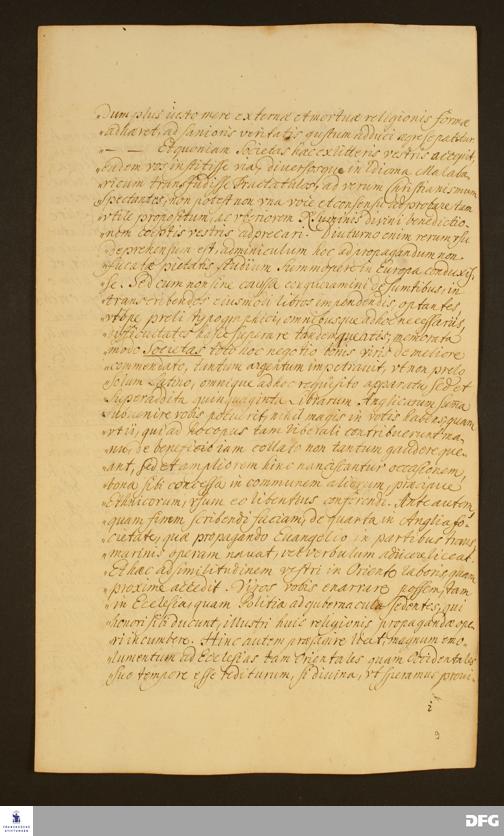 Dum plus iusto mere externæ et mortuæ religionis formæ
adhæret, ad sanioris veritatis gustum adduci ægre se patitur.
— — Et quoniam Societas hæc ex litteris vestris accepit,
eadem vos institisse via, diversosque in Idioma Malaba-
ricum transfudisse Tractatulos, ad verum Christianismum
spectantes, non potest non vna voce et consensu adprobare tam
vtile propositum, ac vberiorem Numinis divini benedictio-
nem cœptis vestris adprecari. Diuturno enim rerum usu
deprehensum est, adminiculum hoc ad propagandum non
fucatæ pietatis studium summopere in Europa conduxis-
se. Sed cum non sine caussa conqueramini de sumtibus, in
transcribendos eiusmodi libros impendendis, optantes,
vt ope preli typographici, omnibusque ad hoc necessariis,
difficultates hasce superare tandem queatis, memorata
modo Societas toto hoc negotio bonis viris de meliore
commendato, tantum argentum impetravit, vt non prelo
solum Latino, omnique ad hoc requisito apparatu sed et
superaddita quinquaginta librarum Anglicarum summa
subvenire vobis potuerit, nihil magis in votis habens, quam
vt ii, qui ad hoc opus tam liberali contribuerunt ma-
nu, de beneficio iam collato non tantum gaudere que-
ant, sed et ampliorem hinc nanciscantur occasionem,
bona sibi concessa in communem aliorum, præcipue
Ethnicorum, vsum eo libentius conferendi. Ante autem,
quam finem scribendi faciam, de quarta in Anglia so-
cietate, quæ propagando Euangelio in partibus trans-
marinis operam navat, vel verbulum adiicere liceat.
Et hæc ad similitudinem vestri in Oriente laboris, quam
proxime accedit. Viros vobis enarrare possem, tam
in Ecclesia, quam Politia ad gubernacula sedentes, qui
honori sibi ducunt, illustri huic religionis propagandæ ope-
ri incumbere. Hinc autem præsagire licet, magnum emo-
lumentum ad Ecclesias tam Orientales quam Occidentales
suo tempore esse rediturum, si divina, vt speramus, provi-
i
9
FRANCKESCHE STIFTUNGEN
DFG